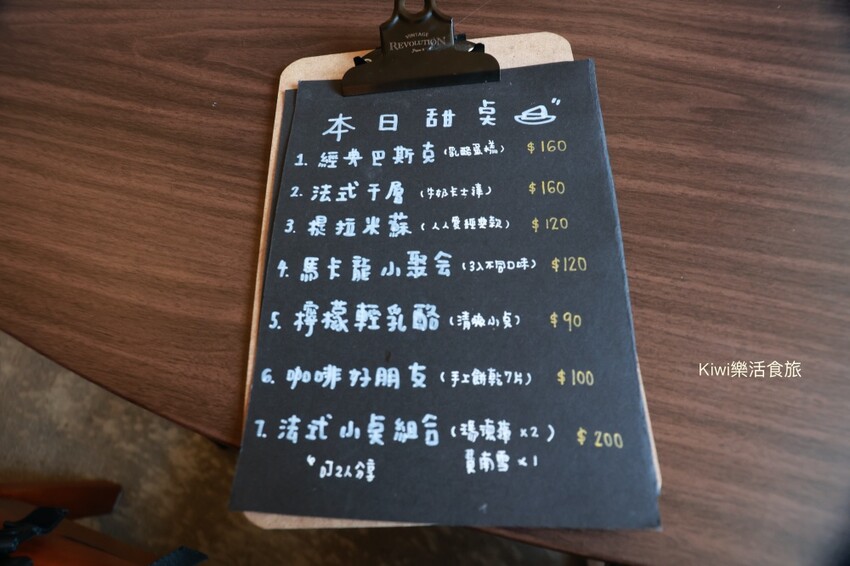 VINTAGE
REVOLUTION
本日甜桌
1. 經典巴斯克(乳酪蛋糕) $160
2. 法式千層(牛奶卡士達) $160
3. 提拉米蘇(人人愛經典款) $120
4. 馬卡龍小聚会(3入不同口味) $120
5. 檸檬輕乳酪(清爽小桌) $90
6. 咖啡好朋友(手工餅乾7片) $100
7. 法式小桌組合(瑪德蓮x2) $200
可2人分享 費南雪x1
Kiwi樂活食旅